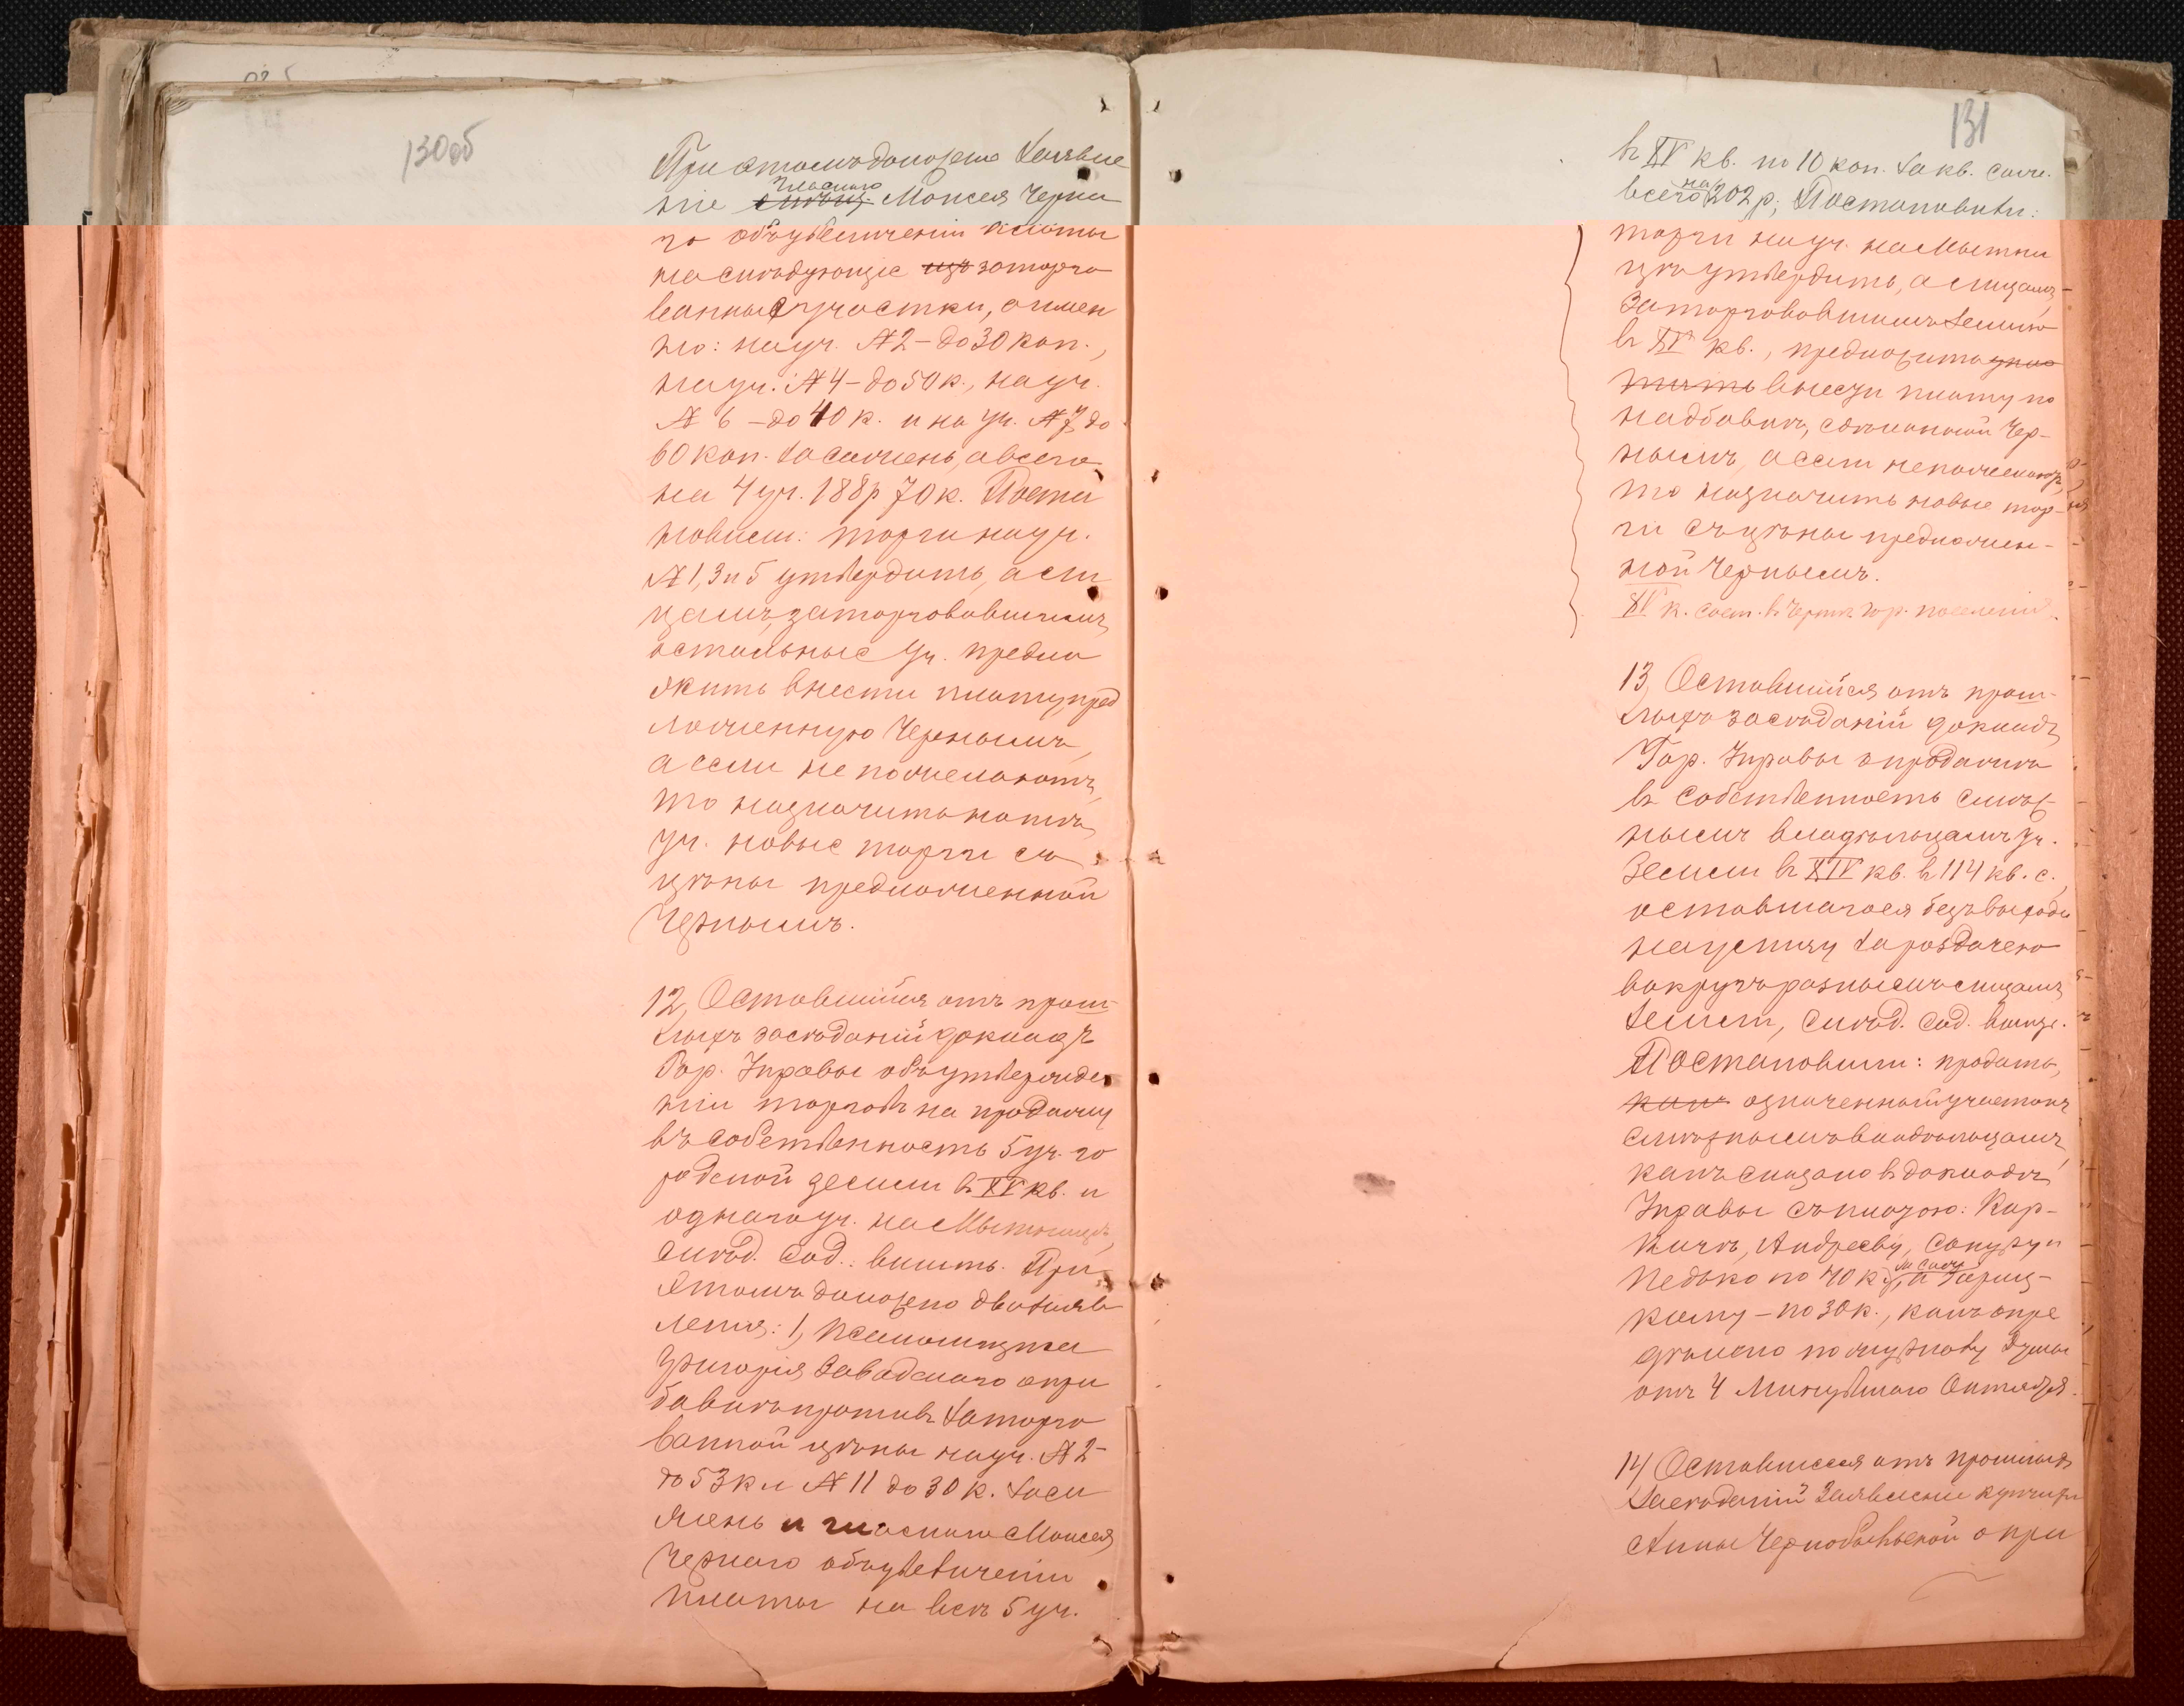 130об
При этомъ доложено заявле
ніе гласнаго Моисея Черна
го объ увеличеніи платы
на слѣдующіе заторго
ванные участки, а имен
но: на уч. № 2 - до 30 коп.,
на уч. № 4 - до 50 к., на уч.
№ 6 - до 40 к. и на уч. № 7 до
60 коп. за сажень, а всего
на 4 уч. 188 р 70 к. Поста
новили: торги на уч.
№ 1, 3 и 5 утвердить, а ли
цамъ, заторговавшимъ
остальные уч. предло
жить внести плату, пред
ложенную Чернымъ,
а если не пожелаютъ,
то назначить на эти
уч. новые торги съ
цѣны предложенной
Чернымъ.
12, Оставшійся отъ прош-
лыхъ засѣданій докладъ
Гор. Управы объ утвержде
ніи торговъ на продажу
въ собственность 5 уч. го
родской земли въ XV кв. и
одного уч. на Мытницѣ,
слѣд. сод.: вшить. При
этомъ доложено два заяв
ленія: 1,
Григорія Завадскаго о при
бавкѣ противъ заторго
ванной цѣны на уч. № 2 -
до 53 к и № 11 до 30 к. за са
жень и гласнаго Моисея
Чернаго объ увеличеніи
платы на всѣ 5 уч.
131
въ XV кв. по 10 коп. за кв. саж.
всего на 202 р; Постановили:
торги на уч. на Мытни
цѣ утвердить, а лицамъ,
заторговавшимъ землю
въ XV кв., предложить
внести плату по
надбавкѣ, сдѣланной Чер-
нымъ, а если не пожелаютъ,
то назначить новые тор-
ги съ цѣны предложен-
ной Чернымъ.
XV к. сост. въ чертѣ гор. поселенія.
13, Оставшійся отъ прош-
лыхъ засѣданій докладъ
Гор. Управы о продажѣ
въ собственность смеж-
нымъ владѣльцамъ уч.
земли въ XIV кв. въ 114 кв. с.,
оставшагося безъ выхода
на улицу за раздачею
вокругъ разнымъ лицамъ
земли, слѣд. сод. вшить.
Постановили: продать,
означенный участокъ
смежнымъ владѣльцамъ,
какъ сказано въ докладѣ
Управы съ платою: Кар-
Андрееву,
по 40 к. за саж, а
кому - по 30 к., какъ опре
дѣлено по журналу Думы
отъ 4 минувшаго Октября.
14, Оставшееся отъ прошлыхъ
засѣданій заявленіе купчихи
Анны Чернобыльской о при